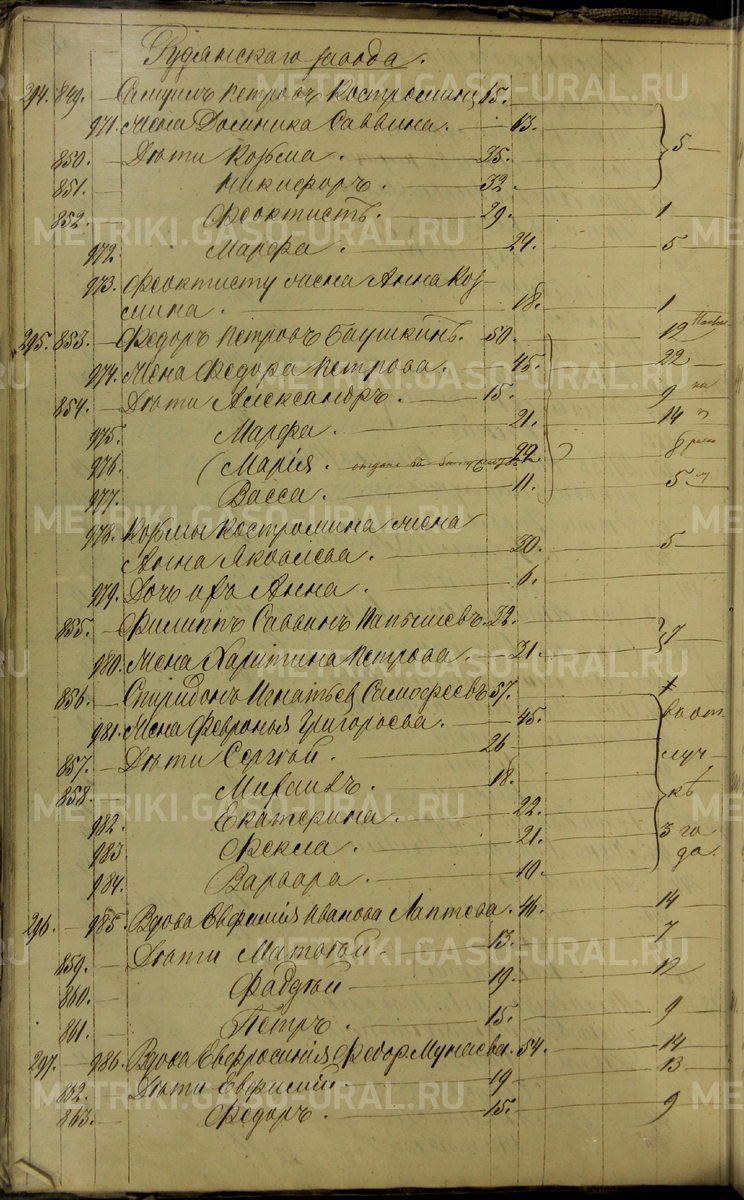 Рудянскаго завода.
294. 849. — Самуилъ Петровъ Костроминъ 65.
971. Жена Домника Саввина. — 63.
850. — Дѣти Козьма. — 35. — 5 —
851. — Никифоръ. — 32.
852. — Феоктистъ. — 29. — 1
972. Марфа. — 24. — 5
973. Феоктисту жена Анна Коз-
мина. — 18. — 1
295. 853. — Федоръ Петровъ Баушкинъ. 50. — 12
974. Жена Федора Петрова. — 45. — 22
854. — Дѣти Александръ. — 15. — 9
975. Марфа. — 21. — 14
976. (Марія. 22. 8
977. Васса. — 11. — 5
978. Козьмы Костромина жена
Анна Яковлева. — 30. — 5
979. Дочь ихъ Анна. — 6.
855. — Филиппъ Саввинъ Папышевъ. 22.
980. Жена Харитина Петрова. — 21. — 7
856. — Спиридонъ Игнатьев Самофеевъ 57. +
981. Жена Февронья Григорьева. — 45. въ от
857. — Дѣти Сергѣй. — 26 луч
858. Михаилъ. — 18. кѣ
982. Екатерина. — 22.
983 Фекла. — 21. 3 го
984. Варвара. — 10. да.
296. — 985. Вдова Евфимія Иванова Лаптева. 46. — 14
859. — Дѣти Матвѣй — 13. — 7
860. — Фаддѣй — 19. — 12
861. — Петръ. — 15. — 9
297. — 986. Вдова Евфросинія Федор. Мунаева. 54. — 14
862. — Дѣти Евфимій. — 19 — 13
863. — Федоръ. — 15. — 9
METRIKI.GASO-URAL.RU